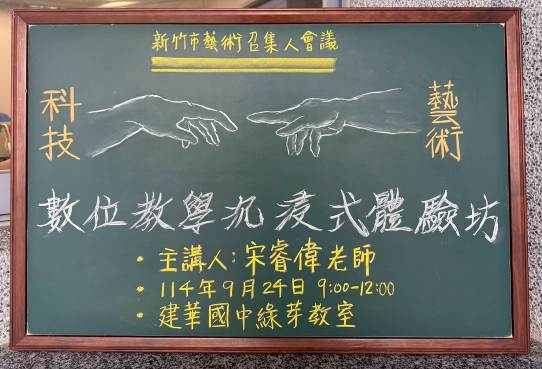 新竹市藝術召集人會議
科技
藝術
數位教學沉浸式體驗坊
• 主講人:宋睿偉老師
• 114年9月24日 9:00-12:00
• 建華國中綠芽教室